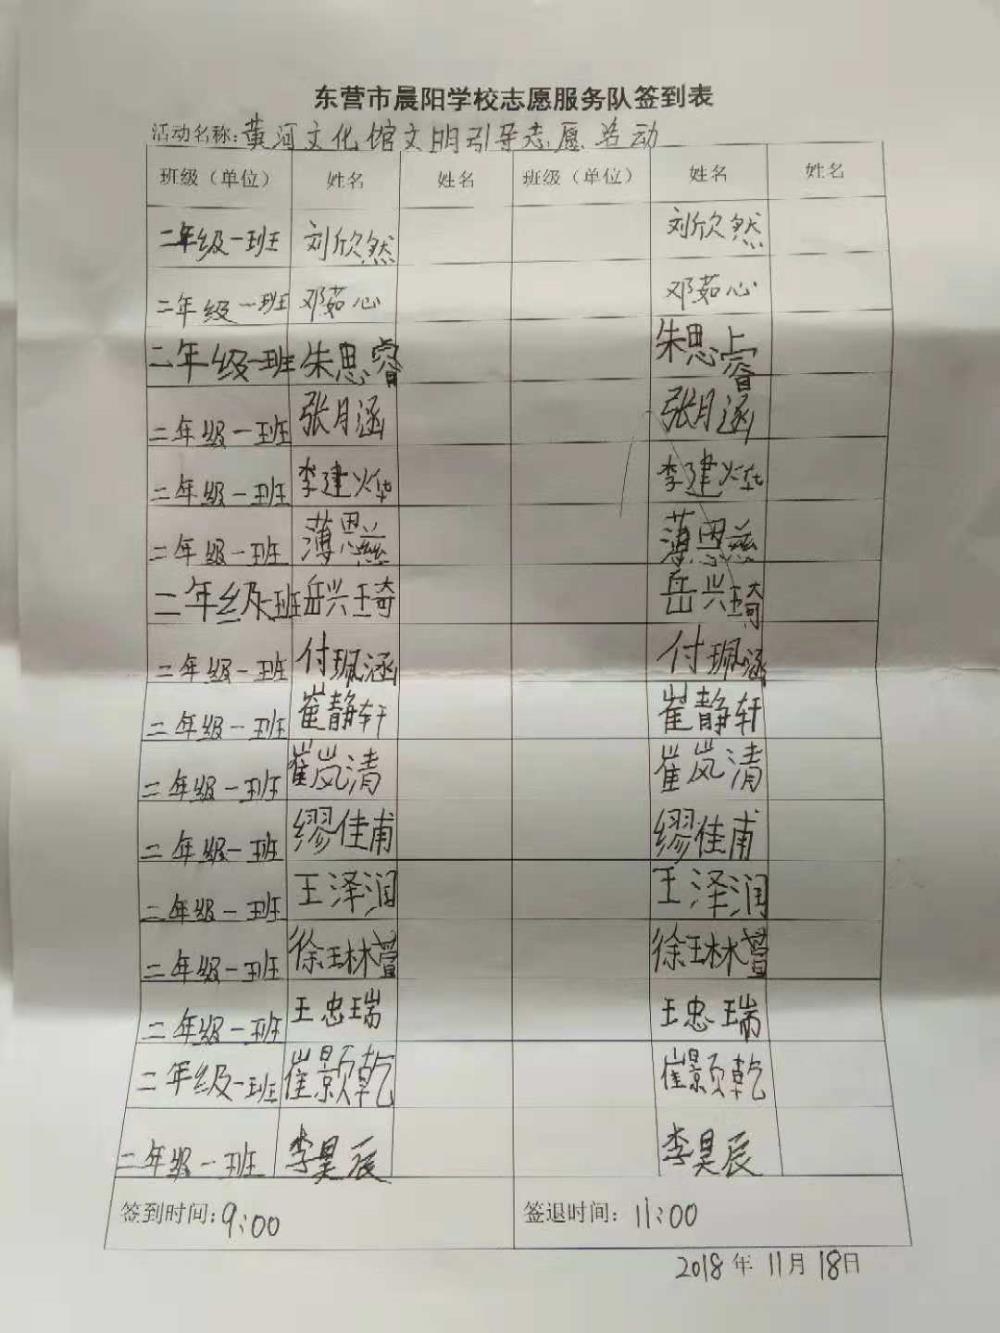 东营市晨阳学校志愿服务队签到表
活动名称:黄河文化馆文明引导志愿活动
班级（单位） 姓名 姓名 班级（单位） 姓名 姓名
二年级一班 刘欣然 刘欣然
二年级一班 邓茹心 邓茹心
二年级一班 朱思睿 朱思睿
二年级一班 张月涵 张月涵
二年级一班 李建烨 李建烨
二年级一班 薄恩慈 薄恩慈
二年级一班 岳兴琦 岳兴琦
二年级一班 付珮涵 付珮涵
二年级一班 崔静轩 崔静轩
二年级一班 崔岚清 崔岚清
二年级一班 缪佳甫 缪佳甫
二年级一班 王泽润 王泽润
二年级一班 徐琳萱 徐琳萱
二年级一班 王忠瑞 王忠瑞
二年级一班 崔颢乾 崔颢乾
二年级一班 李昊辰 李昊辰
签到时间:9:00 签退时间: 11:00
2018年11月18日